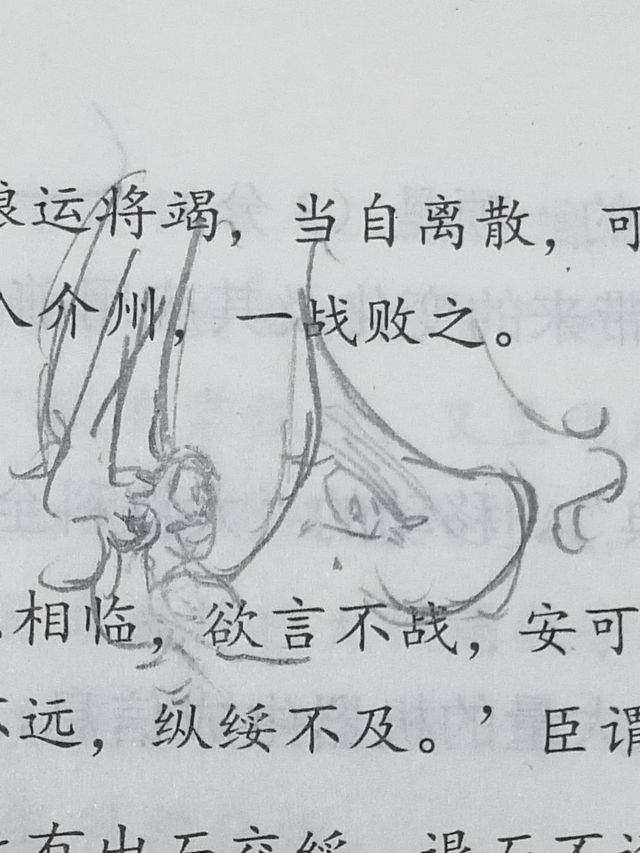 粮运将竭，当自离散，可
入介州，一战败之。
相临，欲言不战，安可
不远，纵绥不及。’臣谓